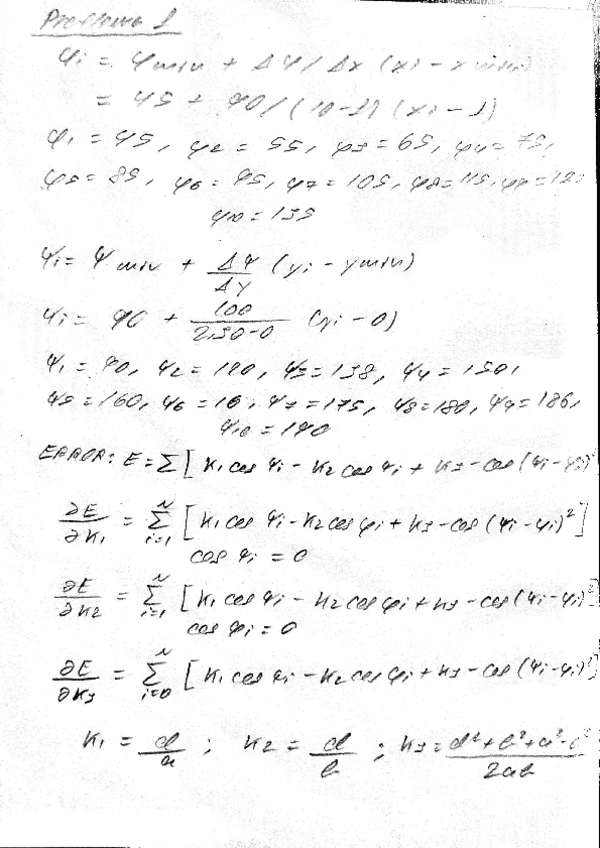 Problema 1
φi = φmin + Δφ/Δx (xi - xmin)
= 45 + 90/(10-1) (xi - 1)
φ1 = 45, φ2 = 55, φ3 = 65, φ4 = 75,
φ5 = 85, φ6 = 95, φ7 = 105, φ8 = 115, φ9 = 125
φ10 = 135
ψi = ψmin + Δψ/Δy (yi - ymin)
ψi = 90 + 100/2,30-0 (yi - 0)
ψ1 = 90, ψ2 = 120, ψ3 = 138, ψ4 = 150,
ψ5 = 160, ψ6 = 16, ψ7 = 175, ψ8 = 180, ψ9 = 186,
ψ10 = 190
ERROR: E = Σ [K1 cos ψi - K2 cos φi + K3 - cos (ψi - φi)
∂E/∂K1 = Σ i=1 N [K1 cos ψi - K2 cos φi + K3 - cos (ψi - φi)²]
cos ψi = 0
∂E/∂K2 = Σ i=1 N [K1 cos ψi - K2 cos φi + K3 - cos (ψi - φi)²]
cos φi = 0
∂E/∂K3 = Σ i=0 N [K1 cos ψi - K2 cos φi + K3 - cos (ψi - φi)²]
K1 = d/a ; K2 = d/b ; K3 = d²+b²+a²-c²/2ab